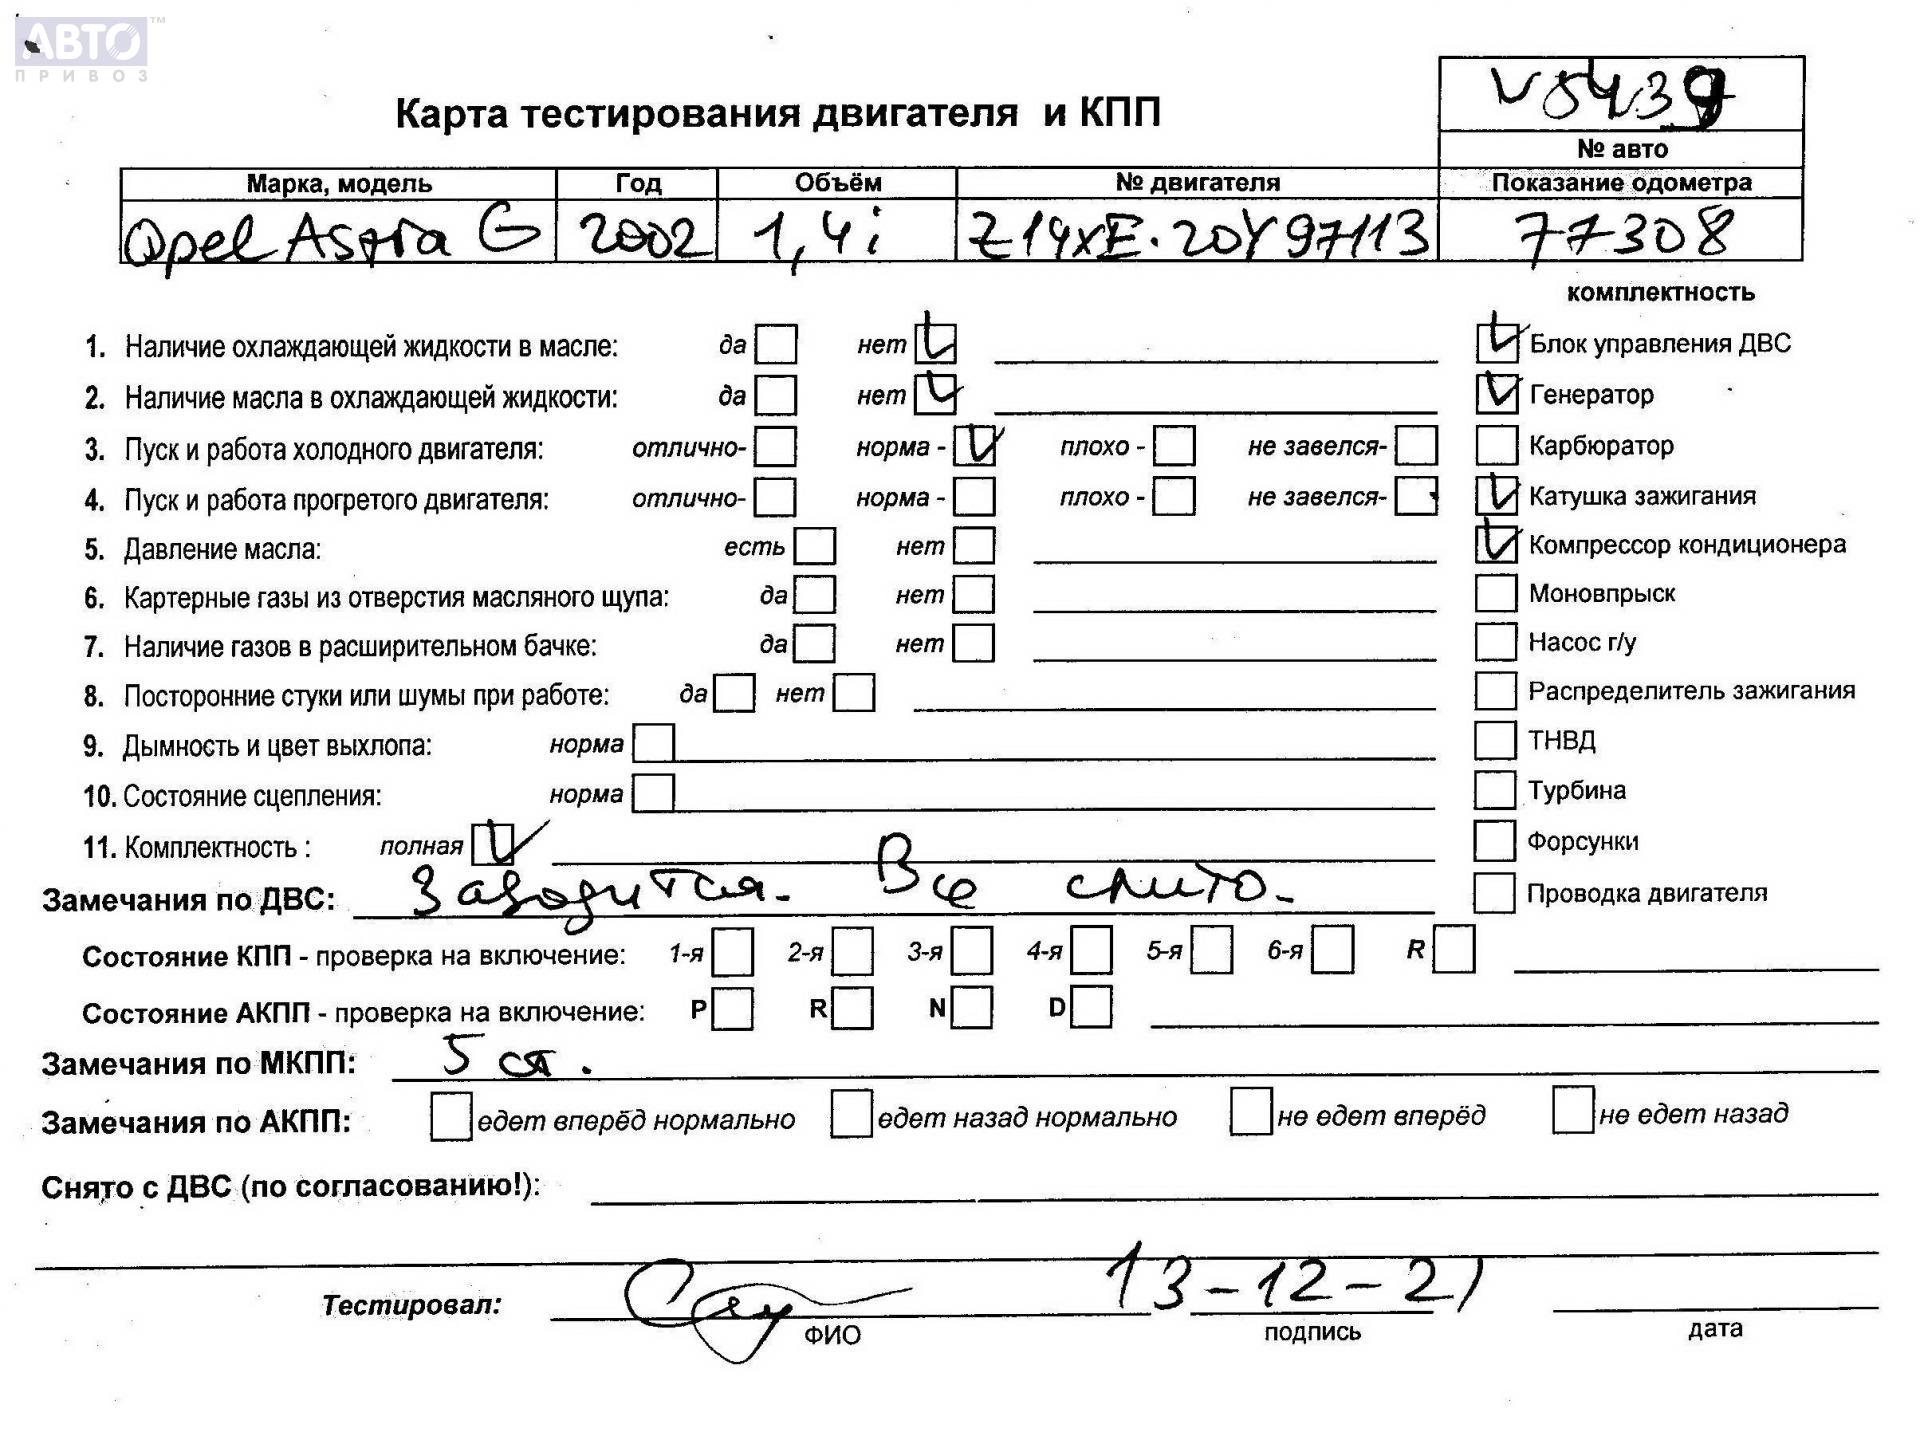 АВТО™
ПРИВОЗ
V5439
Карта тестирования двигателя и КПП
№ авто
Марка, модель Год Объём № двигателя Показание одометра
Opel Astra G 2002 1,4i Z14XE. 20Y97113 77308
комплектность
1. Наличие охлаждающей жидкости в масле: да нет Блок управления ДВС
2. Наличие масла в охлаждающей жидкости: да нет Генератор
3. Пуск и работа холодного двигателя: отлично- норма - плохо - не завелся- Карбюратор
4. Пуск и работа прогретого двигателя: отлично- норма - плохо - не завелся- Катушка зажигания
5. Давление масла: есть нет Компрессор кондиционера
6. Картерные газы из отверстия масляного щупа: да нет Моновпрыск
7. Наличие газов в расширительном бачке: да нет Насос г/у
8. Посторонние стуки или шумы при работе: да нет Распределитель зажигания
9. Дымность и цвет выхлопа: норма ТНВД
10. Состояние сцепления: норма Турбина
11. Комплектность : полная Форсунки
Замечания по ДВС: Заводится. Все слито. Проводка двигателя
Состояние КПП - проверка на включение: 1-я 2-я 3-я 4-я 5-я 6-я R
Состояние АКПП - проверка на включение: P R N D
Замечания по МКПП: 5 ст.
Замечания по АКПП: едет вперёд нормально едет назад нормально не едет вперёд не едет назад
Снято с ДВС (по согласованию!):
Тестировал: 13-12-21
ФИО подпись дата